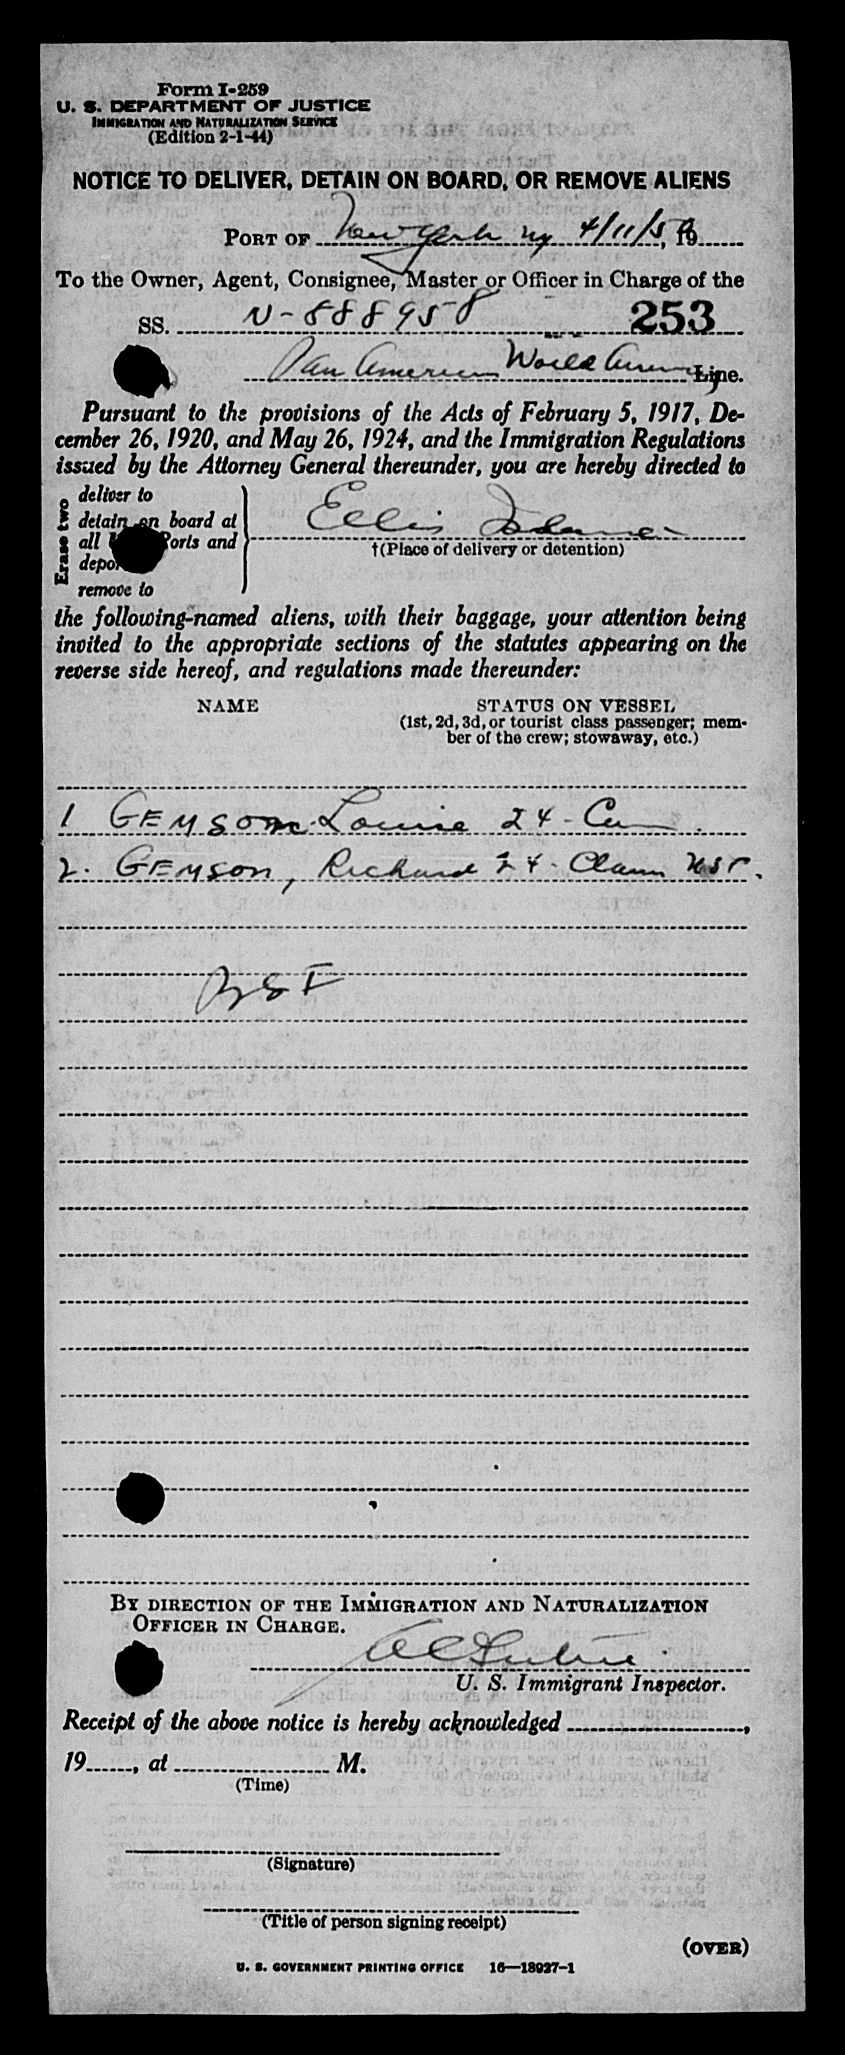 Form I-259
U. S. DEPARTMENT OF JUSTICE
IMMIGRATION AND NATURALIZATION SERVICE
(Edition 2-1-44)
NOTICE TO DELIVER, DETAIN ON BOARD, OR REMOVE ALIENS
PORT OF New York NY 4/11/5 , 19
To the Owner, Agent, Consignee, Master or Officer in Charge of the
SS. N-888958 253
Pan American World Airways Line.
Pursuant to the provisions of the Acts of February 5, 1917, De-
cember 26, 1920, and May 26, 1924, and the Immigration Regulations
issued by the Attorney General thereunder, you are hereby directed to
Erase two
deliver to
detain on board at
all Ports and
remove to
Ellis Island
†(Place of delivery or detention)
the following-named aliens, with their baggage, your attention being
invited to the appropriate sections of the statutes appearing on the
reverse side hereof, and regulations made thereunder:
NAME STATUS ON VESSEL
(1st, 2d, 3d, or tourist class passenger; mem-
ber of the crew; stowaway, etc.)
1 GEMSON Louise 24 -
2. GEMSON, Richard 24 - Claim USC.
BSI
BY DIRECTION OF THE IMMIGRATION AND NATURALIZATION
OFFICER IN CHARGE.
U. S. Immigrant Inspector.
Receipt of the above notice is hereby acknowledged ,
19 , at M.
(Time)
(Signature)
(Title of person signing receipt)
(OVER)
U. S. GOVERNMENT PRINTING OFFICE 16—18927-1